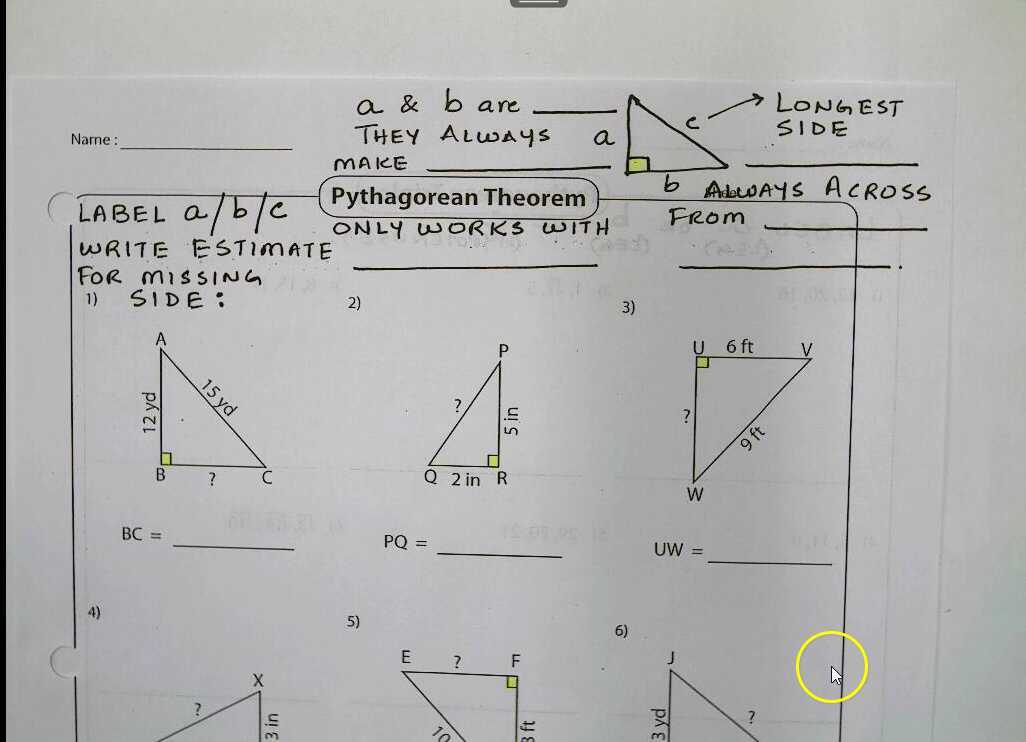 a & b are
a
c
LONGEST
SIDE
THEY ALWAYS
Name :
MAKE
b
ALWAYS ACROSS
FROM
Pythagorean Theorem
LABEL a/b/c
ONLY WORKS WITH
WRITE ESTIMATE
FOR MISSING
SIDE :
1)
A
12 yd
15 yd
B
?
C
BC =
2)
P
?
5 in
Q 2 in R
PQ =
3)
U 6 ft V
?
9 ft
W
UW =
4)
X
?
3 in
5)
E ? F
10
3 ft
6)
J
3 yd
?